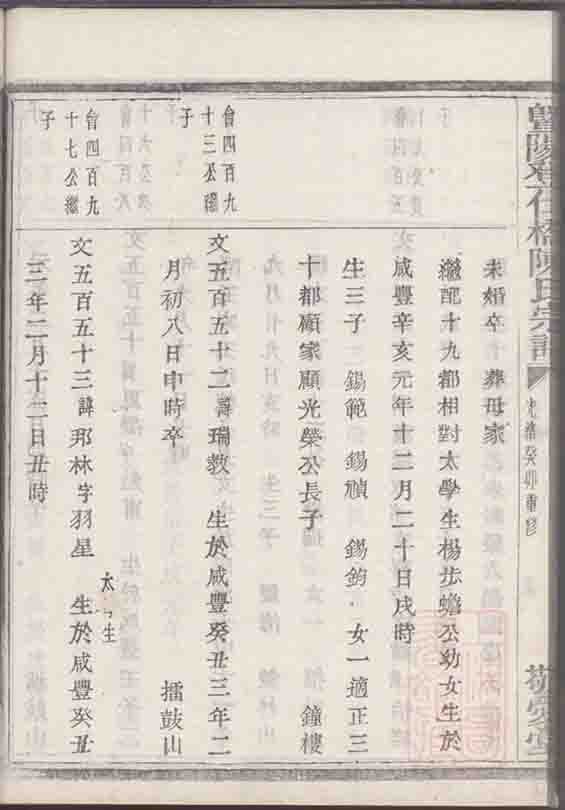 暨陽孝仁橋陳氏宗譜
光緒癸卯重修
敬愛堂
未婚卒 葬母家
繼配十九都相對太學生楊步蟾公幼女生於
咸豐辛亥元年十二月二十日戌時
生三子 錫範 錫禎 錫鈞 女一適正三
十都顧家顯光榮公長子 鐘樓
曾四百九
十三公繼
子
文五百五十二 諱瑞敎 生於咸豐癸丑三年二
月初八日申時卒 擂鼓山
曾四百九
十七公繼
子
文五百五十三 諱邦林字羽星 太學生 生於咸豐癸丑
三年二月十二日丑時